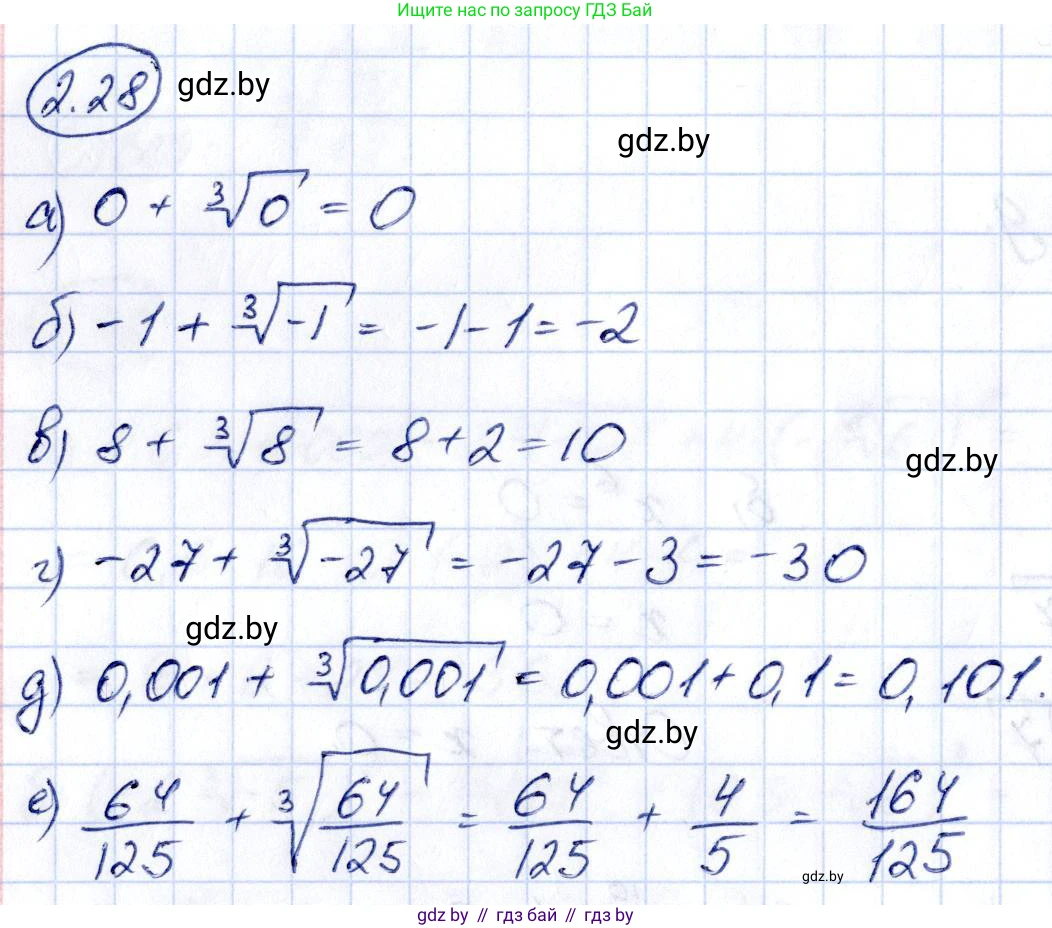 Ищите нас по запросу ГДЗ Бай
2.28 gdz.by
gdz.by
а) 0 + ∛0 = 0
б) -1 + ∛-1 = -1 - 1 = -2
в) 8 + ∛8 = 8 + 2 = 10
gdz.by
г) -27 + ∛-27 = -27 - 3 = -30
gdz.by
д) 0,001 + ∛0,001 = 0,001 + 0,1 = 0,101.
gdz.by
е) 64/125 + ∛64/125 = 64/125 + 4/5 = 164/125
gdz.by
gdz by // гдз бай // gdz by